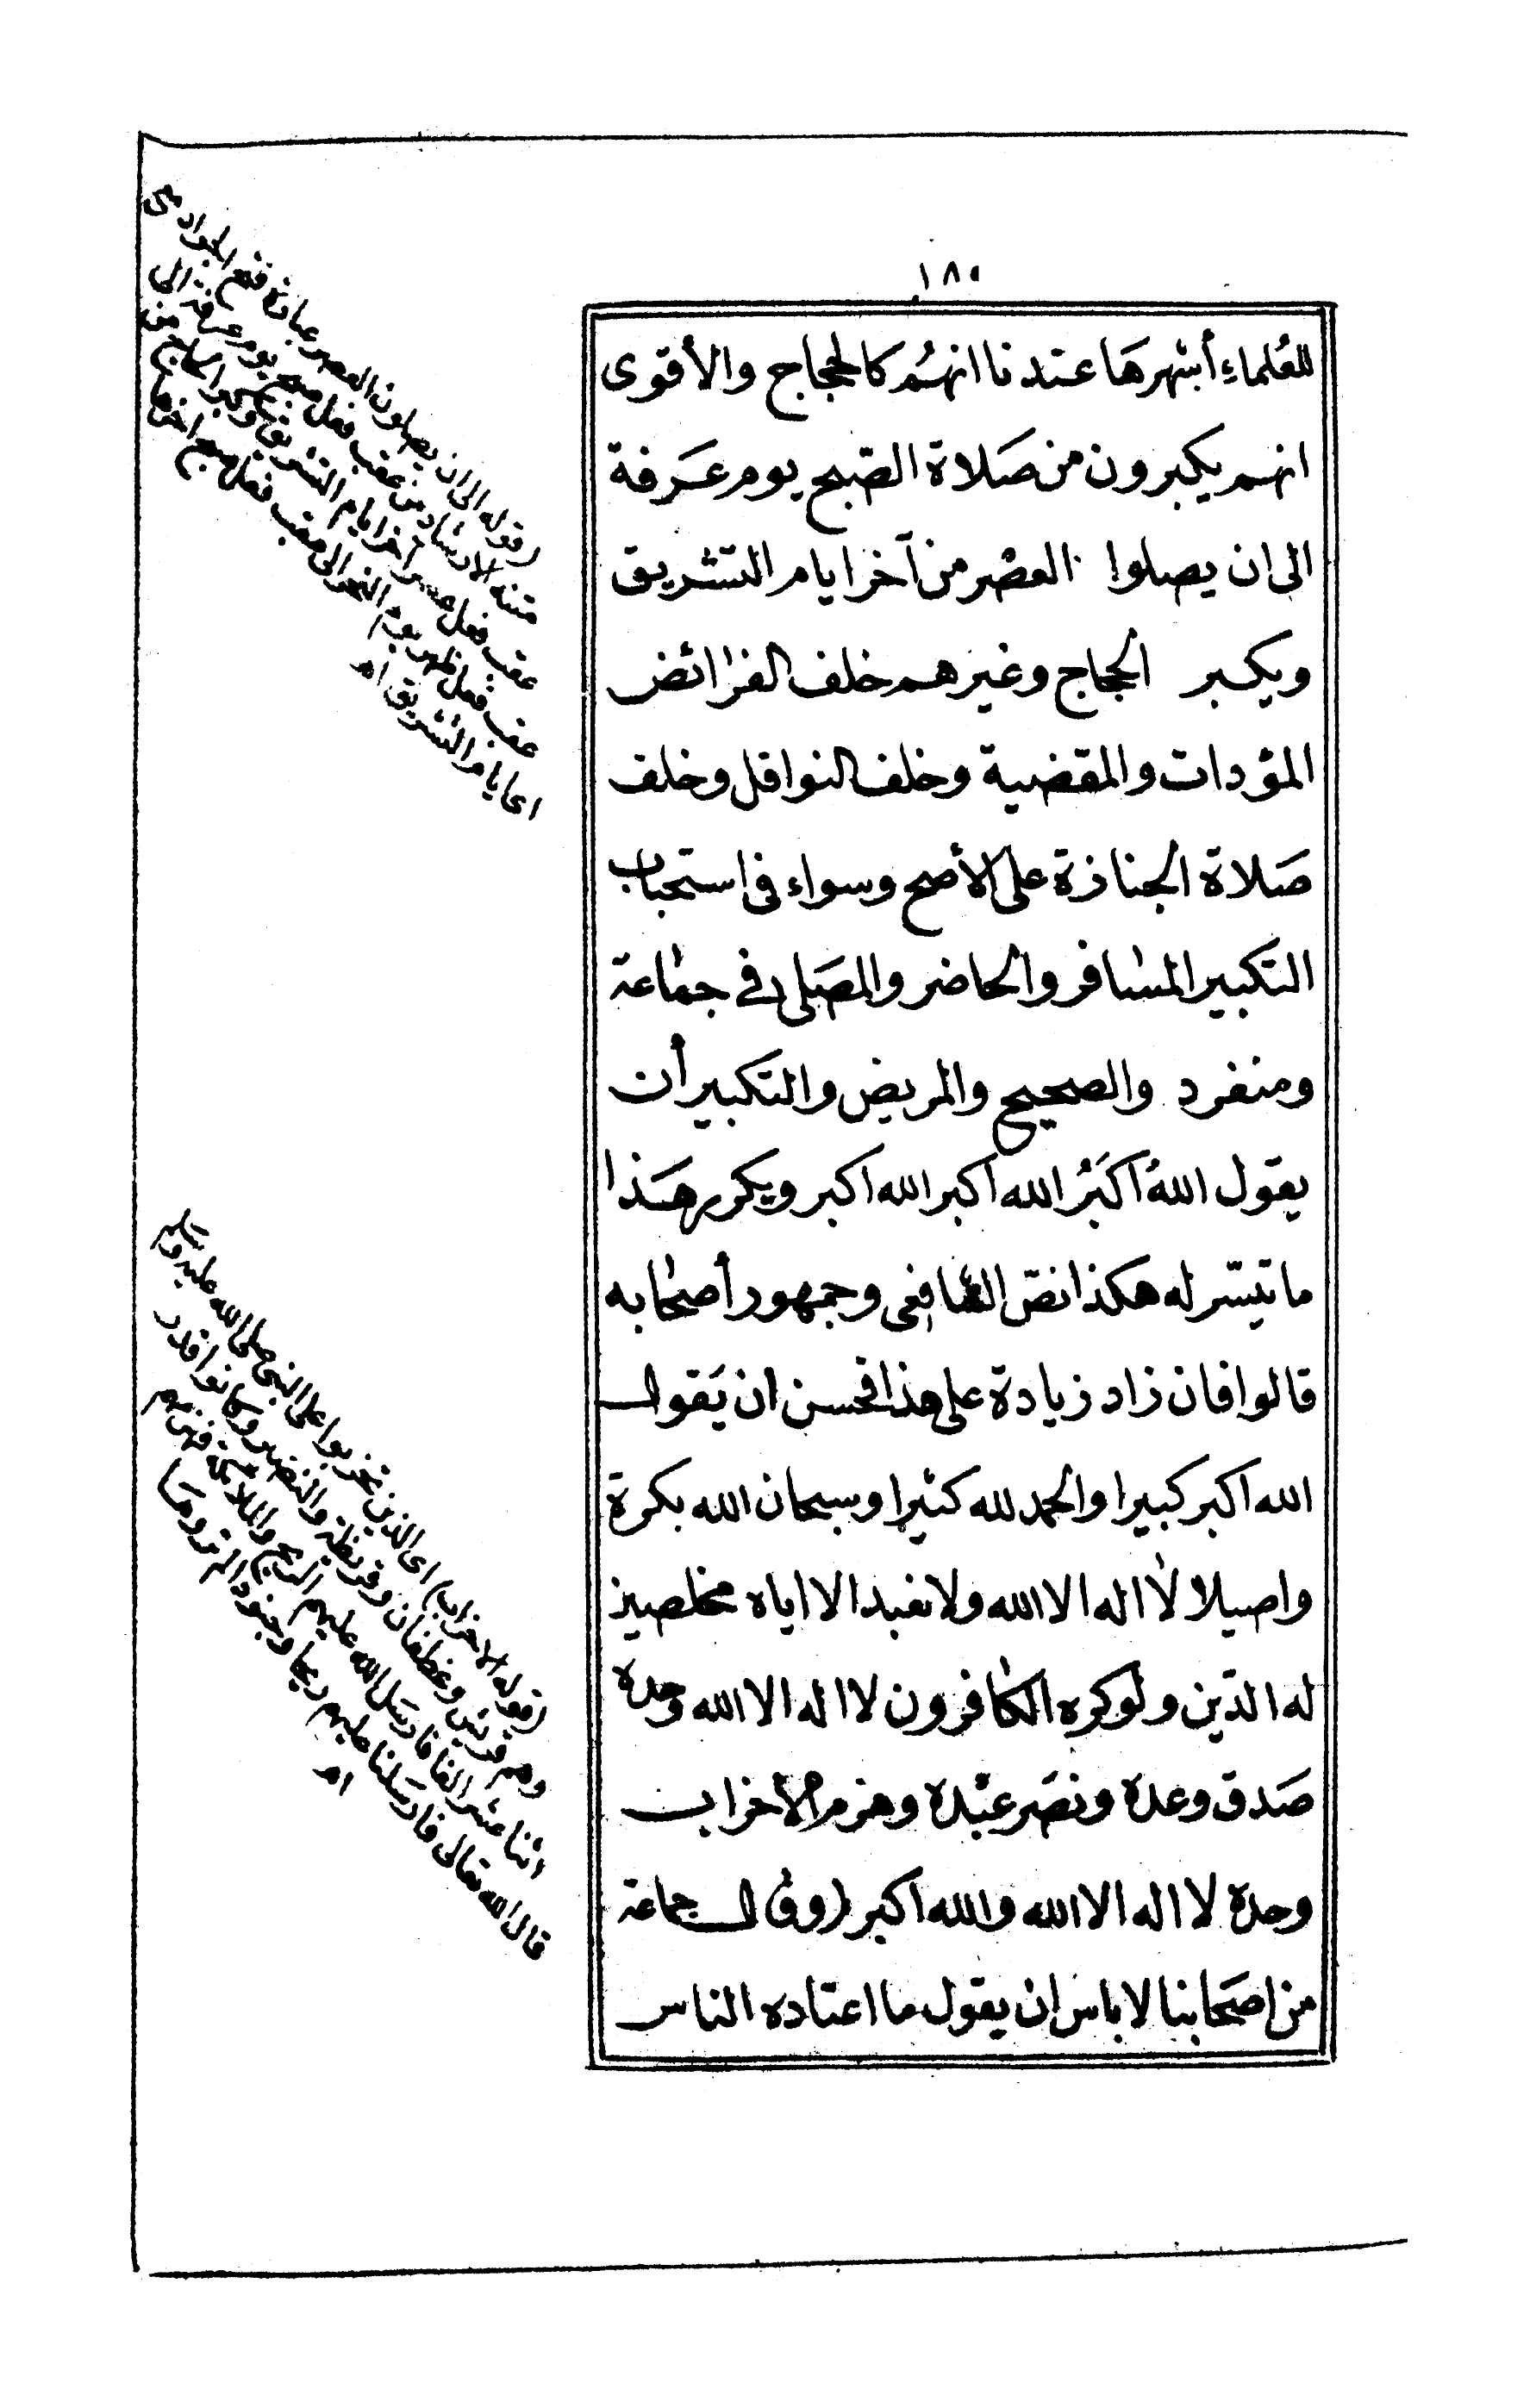 ١٨٠
للعُلماءِ أشهرهَا عندنا انهُم كالحجاج والأقوى
انهم يكبرون من صَلاة الصّبح يوم عَرفة
الى ان يصلوا العصْر من آخر ايام التشريق
ويكبر الحجاج وغيرهم خلف الفرائض
المؤدات والمقضية وخلف النوافل وخلف
صَلاة الجنازة على الأصح وسواء فى استحباب
التكبير المسافر والحاضر والمصَلى فى جماعة
ومنفرد والصحيح والمريض والتكبير أن
يقول اللهُ اكبَرُ الله اكبر الله اكبر ويكرر هَذا
ما تيسّر له هكذا نصّ الشافعى وجمهور أصحابه
قالوا فان زاد زيادة على هذا فحسن ان يَقول
الله اكبر كبيرا والحمد لله كثيرا وسبحان الله بكرة
واصيلا لا اله الا الله ولا نعبد الا اياه مخلصين
له الدّين ولو كره الكافرون لا اله الا الله وحده
صَدق وعده ونصَر عبْده وهزم الأحزاب
وحده لا اله الا الله والله اكبر (وقال جماعة
من اصحَابنا لا باس ان يقول ما اعتاده الناس
(قوله الى ان يصلون العصر عبارة فتح الجواد مع
متنه الارشاد من عقب فعل صبح يوم عرفة الى
عقب فعل عصر آخر ايام التشريق وكبر الحاج من
عقب فعل ظهر يوم النحر الى عقب فعل صبح اخرها
اى ايام التشريق اه
(قوله الاحزاب) اى الذين تحزبوا على النبى صلى الله عليه وسلم
وهم قريش وغطفان وقريظة والنضير وكانوا قدر
اثنا عشر الفا فارسَل الله عليهم الريح والملائكة فهزمهم
قال الله تعالى فارسَلنا عليهم ريحا وجنودا لم تروهَا
اه